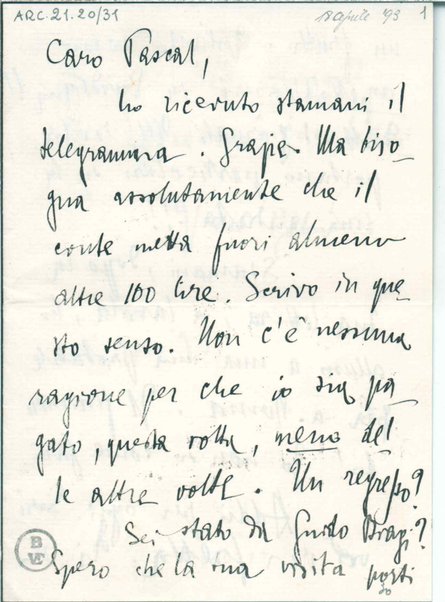 ARC.21.20/31
18 aprile '93 1
Caro Pascal,
ho ricevuto stamani il
telegramma. Grazie. Ma biso-
gna assolutamente che il
conte metta fuori almeno
altre 100 lire. Scrivo in que-
sto senso. Non c'è nessuna
ragione per che io sia pa-
gato, questa volta, meno del-
le altre volte. Un regresso?
Sei stato da Guido Biagi?
Spero che la sua visita porti
BVE